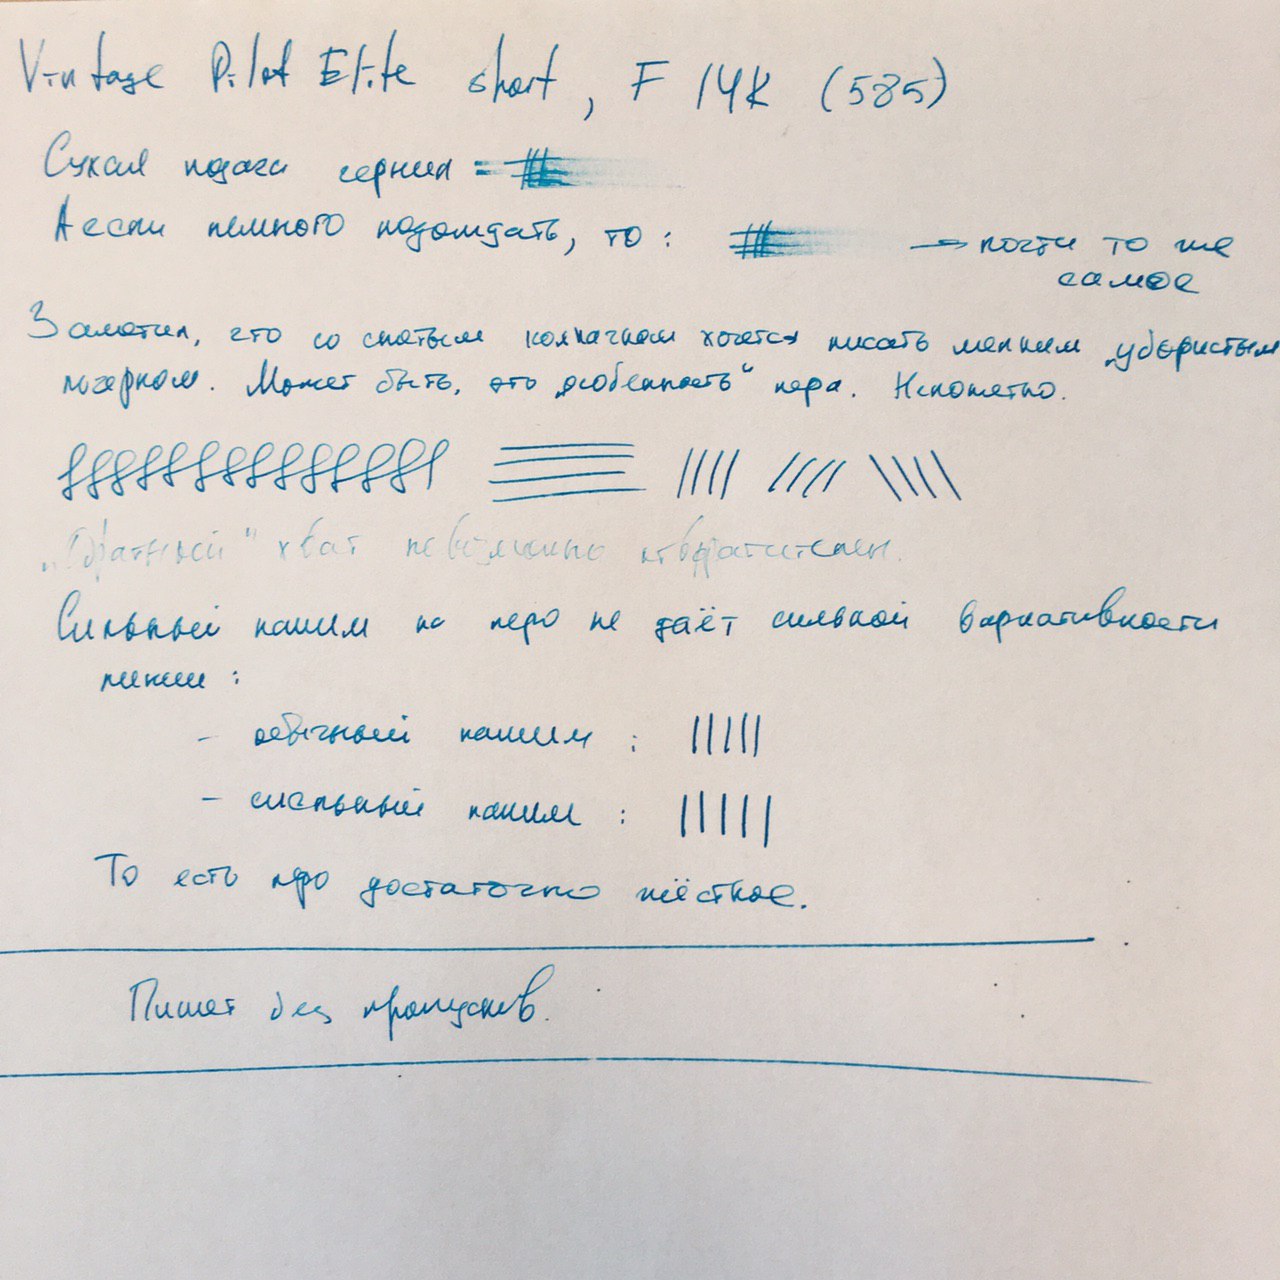 Vintage Pilot Elite short, F 14K (585)
Сухая подача чернил =
А если немного подождать, то : → почти то же
самое
Заметил, что со снятым колпачком хочется писать мелким „убористым
почерком. Может быть, это „особенность“ пера. Непонятно.
„Обратный“ хват невозможно отвратителен.
Сильный нажим на перо не даёт сильной вариативности
линии :
- обычный нажим :
- сильный нажим :
То есть перо достаточно жёсткое.
Пишет без пропусков.